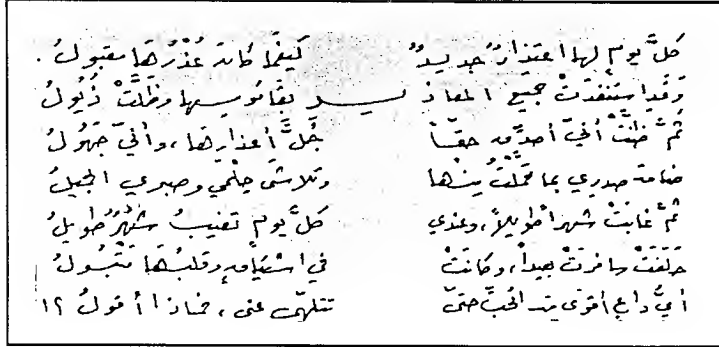 كلَّ يومٍ لها اعتذارٌ جديدٌ كيفما كانَ عُذْرُها مقبولُ .
وَقَدِ استنفدتْ جميع المعاذيـــرِ بقاموسها وظلَّتْ ذُيُولُ
ثمَّ ظنَّتْ أنّي أصدِّق حقّاً جُلَّ أعذارِها، وأنّي جَهُولُ
ضاقَ صدري بما تحمَّلْتُ مِنْها وتلاشى حِلْمي وصبري الجميلُ
ثمَّ غابتْ شهراً طويلاً، وعندي كلَّ يوم تغيبُ شهْرٌ طويلُ
حَلَفَتْ سافرتْ بعيداً، وكانتْ في اشتياقٍ وقلبُها مَتْبُولُ
أيُّ داعٍ أقوى من الحبِّ حتّى تتلهّى عنّي، فماذا أقولُ ؟!